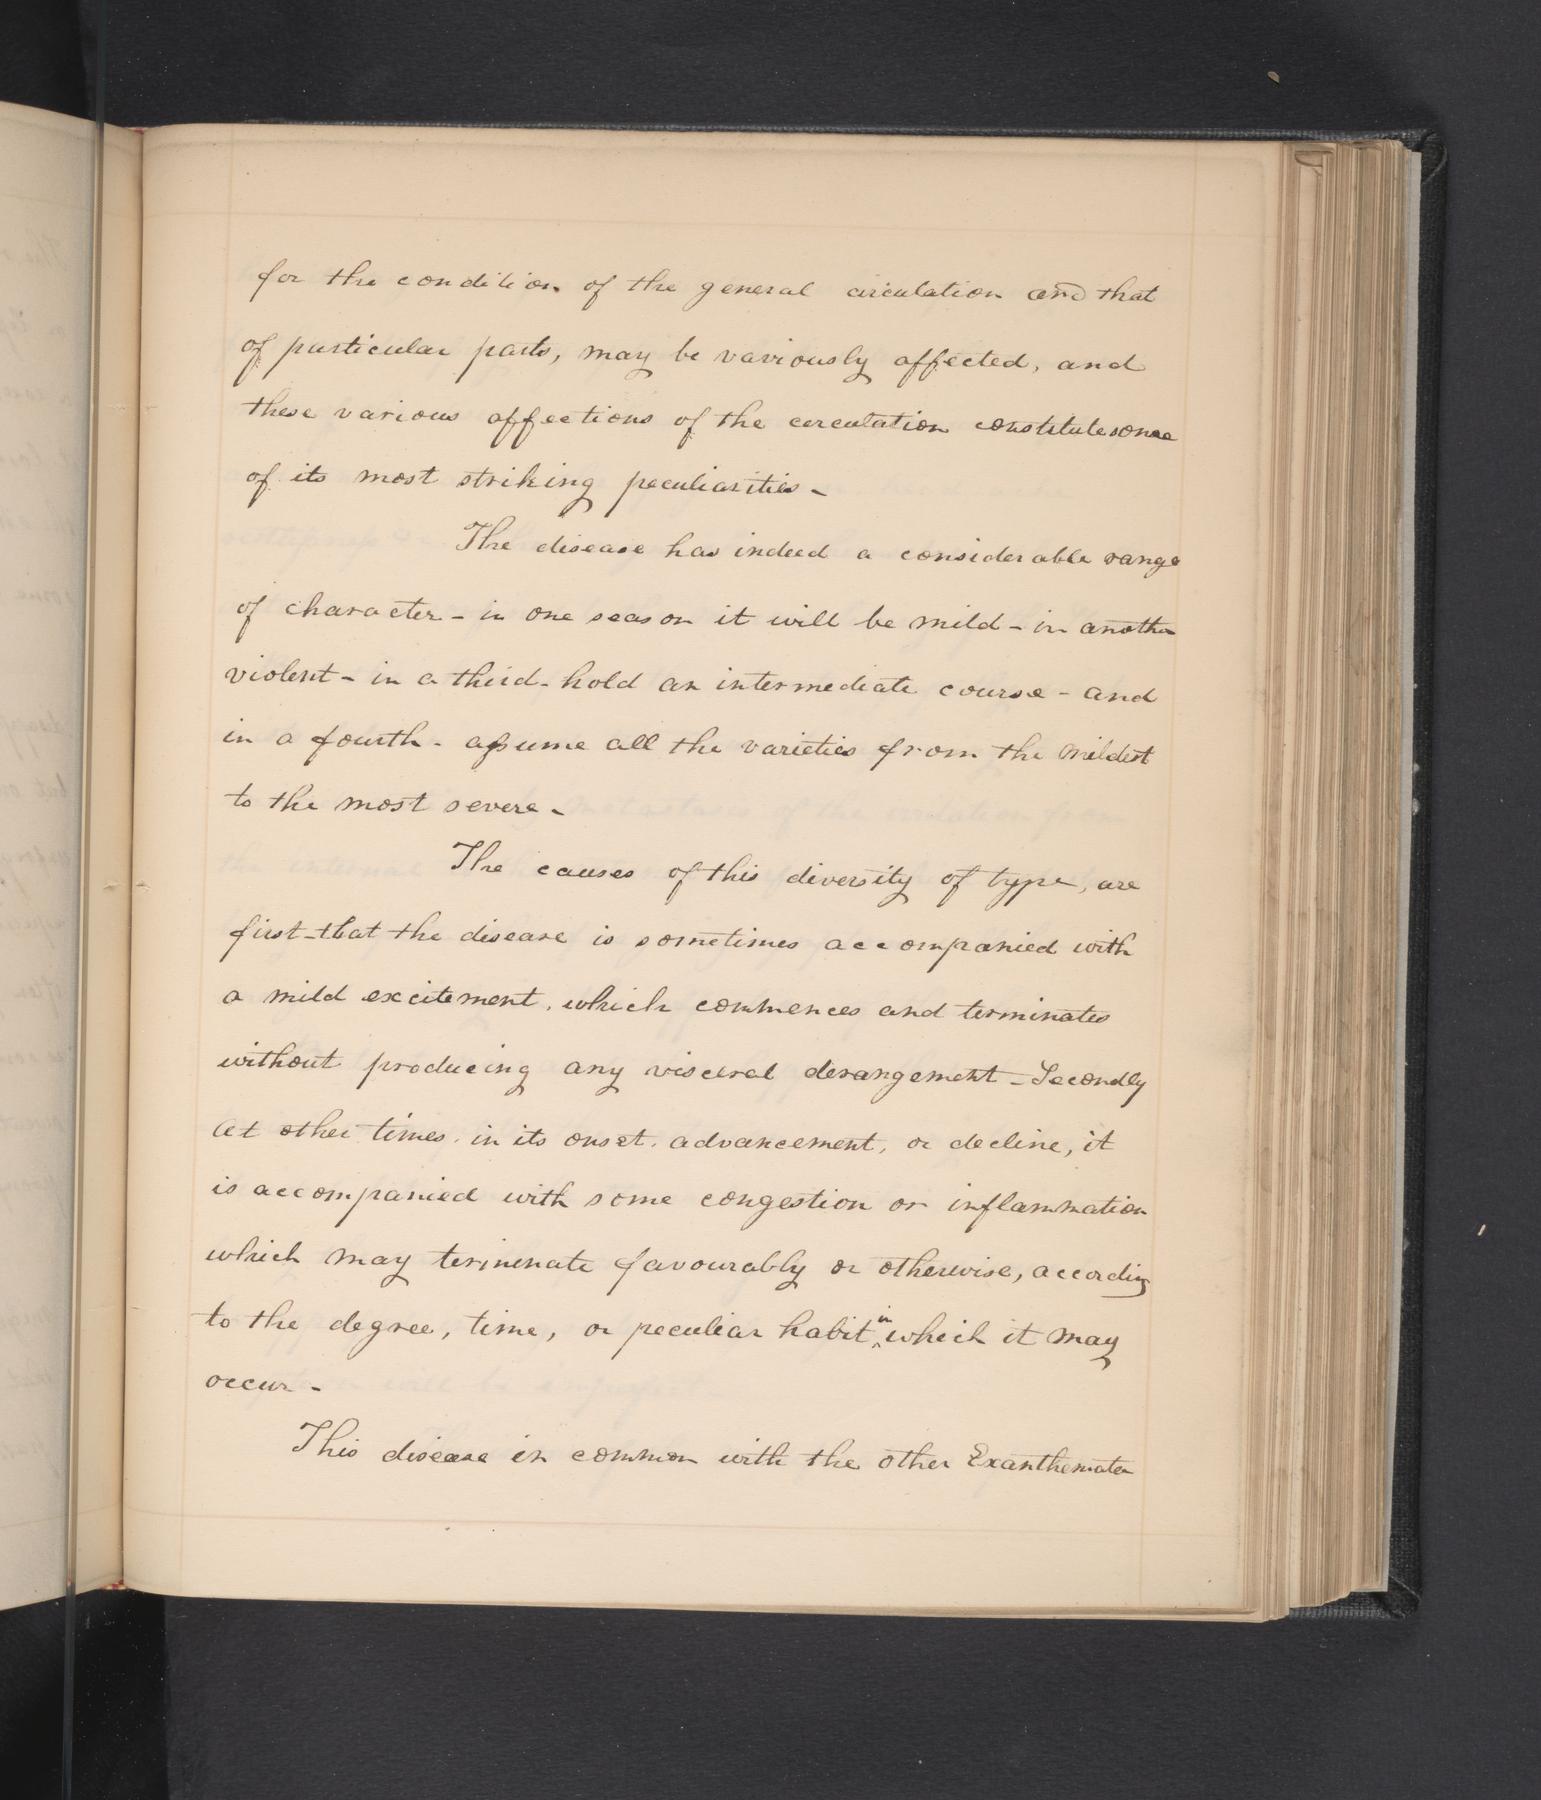 for the condition of the general circulation and that
of particular parts, may be variously affected, and
these various affections of the circulation constitute some
of its most striking peculiarities -
The disease has indeed a considerable range
of character - in one season it will be mild - in another
violent - in a third - hold an intermediate course - and
in a fourth - assume all the varieties from the mildest
to the most severe -
The causes of this diversity of type, are
first - that the disease is sometimes accompanied with
a mild excitement, which commences and terminates
without producing any visceral derangement - Secondly
At other times, in its onset, advancement, or decline, it
is accompanied with some congestion or inflammation
which may terminate favourably or otherwise, according
to the degree, time, or peculiar habit in which it may
occur -
This disease in common with the other Exanthemata